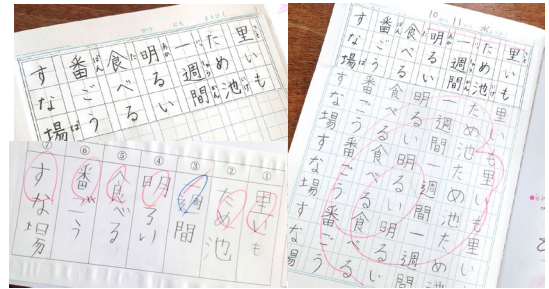 里いも
ため池
一週間
明るい
食べる
番ごう
すな場
① 里いも
② ため池
③ 週間
④ 明るい
⑤ 食べる
⑥ 番ごう
⑦ すな場
10 11 水
里いも里いも里いも
ため池ため池ため池
一週間一週間一週間
明るい明るい明るい
食べる食べる食べる
番ごう番ごう番ごう
すな場すな場すな場